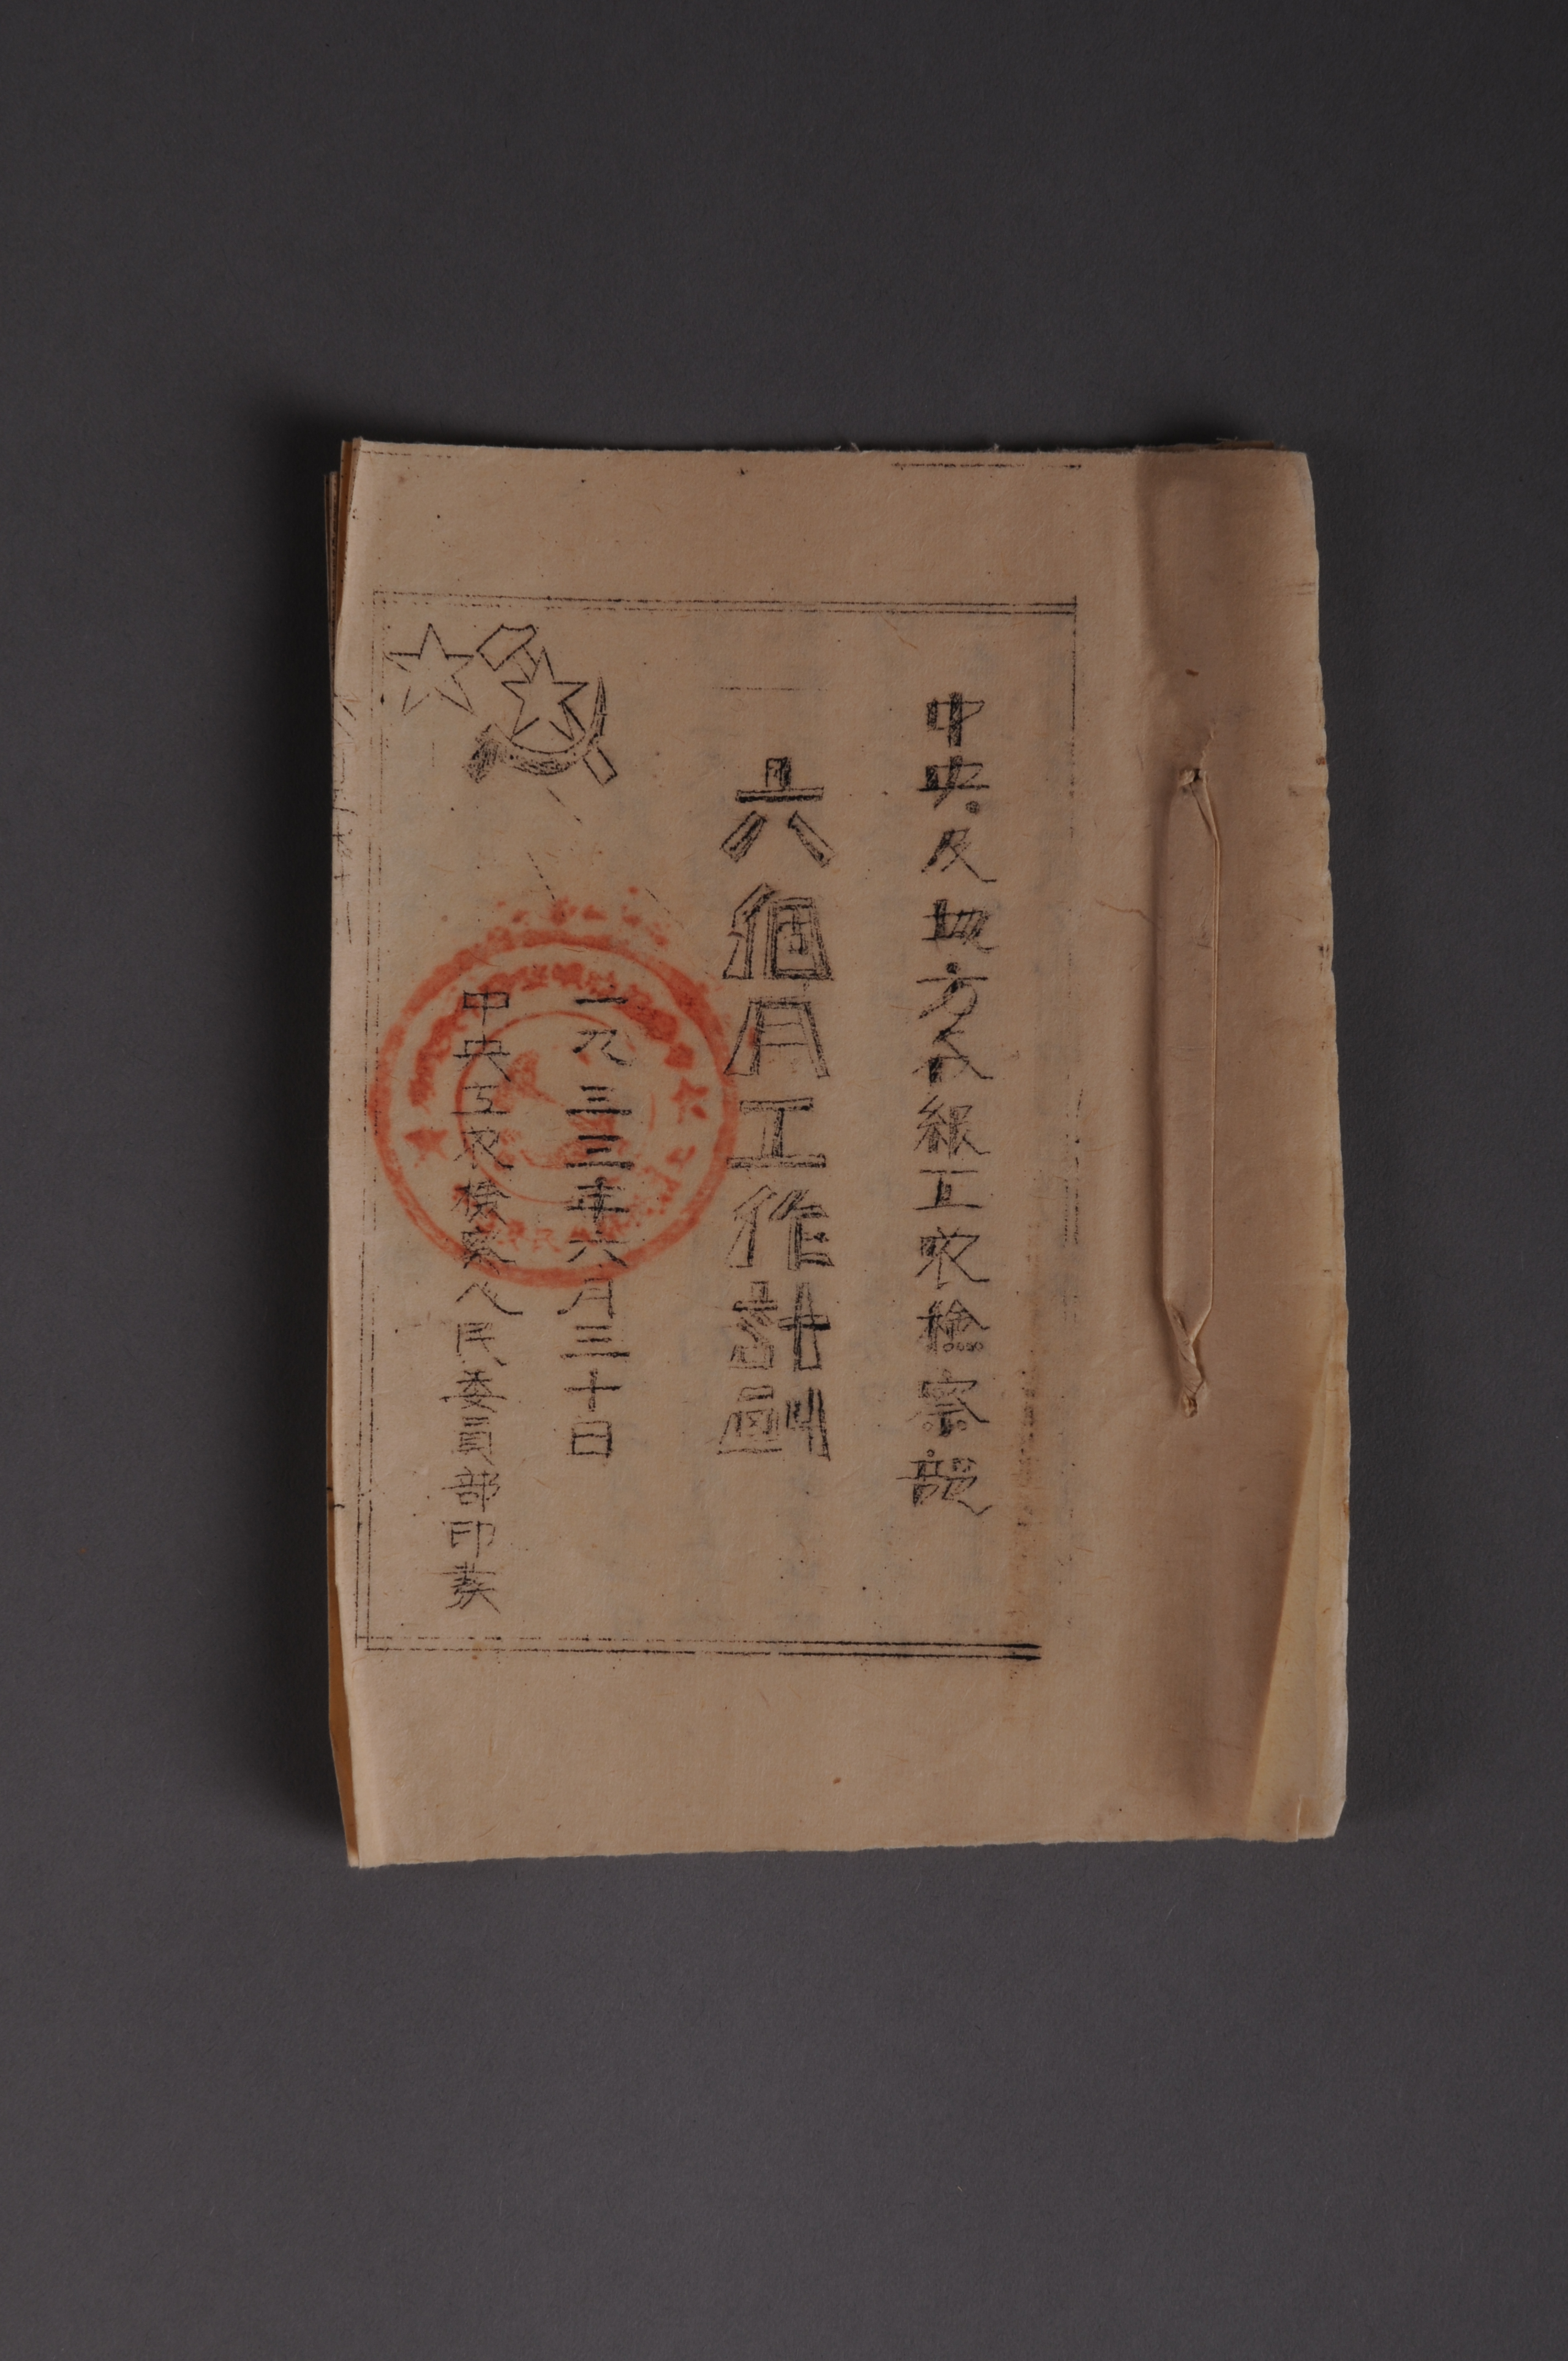 中央及地方各級工农檢察部
六個月工作計劃
一九三三年六月三十日
中央工农檢察人民委員部印發